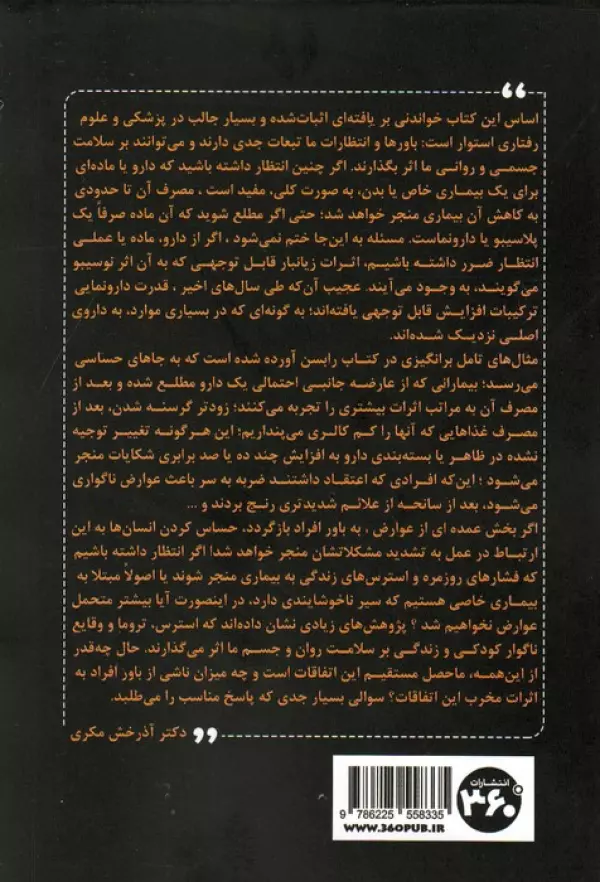 اساس این کتاب خواندنی بر یافته‌ای اثبات‌شده و بسیار جالب در پزشکی و علوم
رفتاری استوار است: باورها و انتظارات ما تبعات جدی دارند و می‌توانند بر سلامت
جسمی و روانی ما اثر بگذارند. اگر چنین انتظار داشته باشید که دارو یا ماده‌ای
برای یک بیماری خاص یا بدن، به صورت کلی، مفید است ، مصرف آن تا حدودی
به کاهش آن بیماری منجر خواهد شد؛ حتی اگر مطلع شوید که آن ماده صرفاً یک
پلاسیبو یا دارونماست. مسئله به این‌جا ختم نمی‌شود ، اگر از دارو، ماده یا عملی
انتظار ضرر داشته باشیم، اثرات زیانبار قابل توجهی که به آن اثر نوسیبو
می‌گویند، به وجود می‌آیند. عجیب آن‌که طی سال‌های اخیر ، قدرت دارونمایی
ترکیبات افزایش قابل توجهی یافته‌اند؛ به گونه‌ای که در بسیاری موارد، به داروی
اصلی نزدیک شده‌اند.
مثال‌های تامل برانگیزی در کتاب رابسن آورده شده است که به جاهای حساسی
می‌رسد؛ بیمارانی که از عارضه جانبی احتمالی یک دارو مطلع شده و بعد از
مصرف آن به مراتب اثرات بیشتری را تجربه می‌کنند؛ زودتر گرسنه شدن، بعد از
مصرف غذاهایی که آنها را کم کالری می‌پنداریم؛ این هرگونه تغییر توجیه
نشده در ظاهر یا بسته‌بندی دارو به افزایش چند ده یا صد برابری شکایات منجر
می‌شود ؛ این‌که افرادی که اعتقاد داشتند ضربه به سر باعث عوارض ناگواری
می‌شود، بعد از سانحه از علائم شدیدتری رنج بردند و ...
اگر بخش عمده ای از عوارض ، به باور افراد بازگردد، حساس کردن انسان‌ها به این
ارتباط در عمل به تشدید مشکلاتشان منجر خواهد شد! اگر انتظار داشته باشیم
که فشارهای روزمره و استرس‌های زندگی به بیماری منجر شوند یا اصولاً مبتلا به
بیماری خاصی هستیم که سیر ناخوشایندی دارد، در اینصورت آیا بیشتر متحمل
عوارض نخواهیم شد ؟ پژوهش‌های زیادی نشان داده‌اند که استرس، تروما و وقایع
ناگوار کودکی و زندگی بر سلامت روان و جسم ما اثر می‌گذارند. حال چه‌قدر
از این‌همه، ماحصل مستقیم این اتفاقات است و چه میزان ناشی از باور افراد به
اثرات مخرب این اتفاقات؟ سوالی بسیار جدی که پاسخ مناسب را می‌طلبد.
دکتر آذرخش مکری
انتشارات
۳۶۰
9 786225 558335
WWW.360PUB.IR